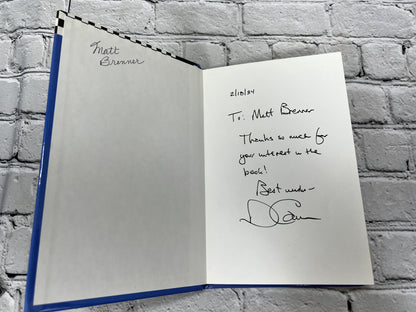 Matt
Brenner
2/18/84
To: Matt Brenner
Thanks so much for
your interest in the
book!
Best wishes -